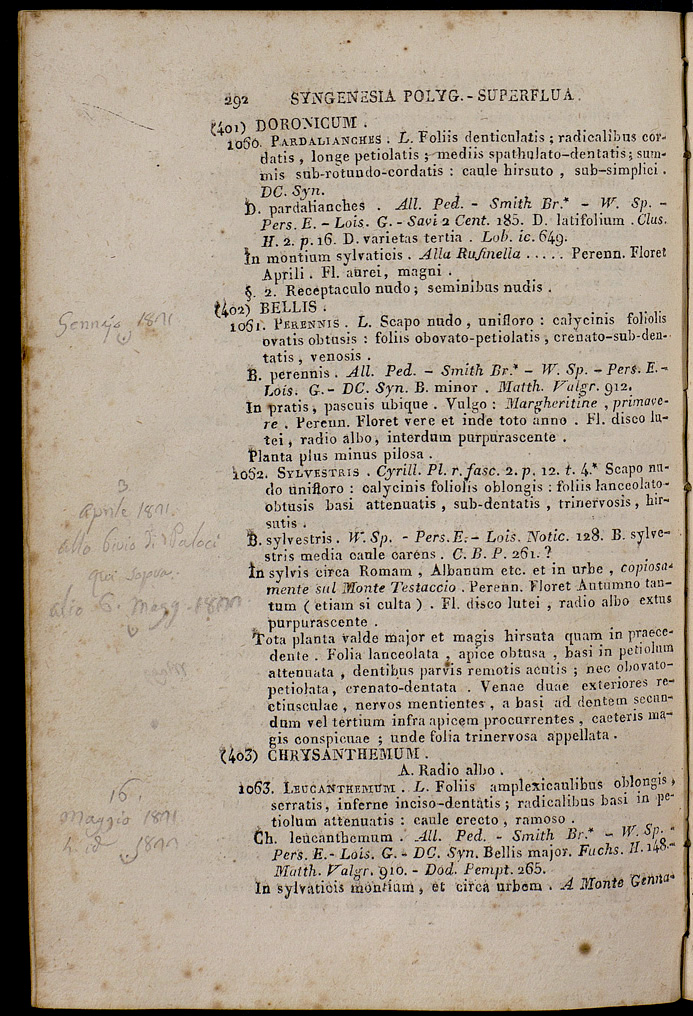 292 SYNGENESIA POLYG.-SUPERFLUA.
(401) DORONICUM .
1060. PARDALIANCHES . L. Foliis denticulatis ; radicalibus cor-
datis , longe petiolatis ; mediis spathulato-dentatis ; sum-
mis sub-rotundo-cordatis : caule hirsuto , sub-simplici .
DC. Syn.
D. pardalianches . All. Ped. - Smith Br.* - W. Sp. -
Pers. E. - Lois. G. - Savi 2 Cent. 185. D. latifolium . Clus.
H. 2. p. 16. D. varietas tertia . Lob. ic. 649.
In montium sylvaticis . Alla Rufinella . . . . . Perenn. Floret
Aprili . Fl. aurei, magni .
§. 2. Receptaculo nudo ; seminibus nudis .
(402) BELLIS .
Gennajo 1811
1061. PERENNIS . L. Scapo nudo , unifloro : calycinis foliolis
ovatis obtusis : foliis obovato-petiolatis , crenato-sub-den-
tatis , venosis .
B. perennis . All. Ped. - Smith Br.* - W. Sp. - Pers. E. -
Lois. G. - DC. Syn. B. minor . Matth. Valgr. 912.
In pratis , pascuis ubique . Vulgo : Margheritine , primave-
re . Perenn. Floret vere et inde toto anno . Fl. disco lu-
tei , radio albo , interdum purpurascente .
Planta plus minus pilosa .
1062. SYLVESTRIS . Cyrill. Pl. r. fasc. 2. p. 12. t. 4.* Scapo nu-
do unifloro : calycinis foliolis oblongis : foliis lanceolato-
obtusis basi attenuatis , sub-dentatis , trinervosis , hir-
sutis .
3
aprile 1811.
qui sopra.
B. sylvestris . W. Sp. - Pers. E. - Lois. Notic. 128. B. sylve-
stris media caule carens . C. B. P. 261. ?
In sylvis circa Romam , Albanum etc. et in urbe , copiosa-
mente sul Monte Testaccio . Perenn. Floret Autumno tan-
tum ( etiam si culta ) . Fl. disco lutei , radio albo extus
purpurascente .
Tota planta valde major et magis hirsuta quam in praece-
dente . Folia lanceolata , apice obtusa , basi in petiolum
attenuata , dentibus parvis remotis acutis ; nec obovato-
petiolata , crenato-dentata . Venae duae exteriores re-
ctiusculae , nervos mentientes , a basi ad dentem secun-
dum vel tertium infra apicem procurrentes , caeteris ma-
gis conspicuae ; unde folia trinervosa appellata .
(403) CHRYSANTHEMUM .
A. Radio albo .
16.
Maggio 1811
1063. LEUCANTHEMUM . L. Foliis amplexicaulibus oblongis ,
serratis , inferne inciso-dentatis ; radicalibus basi in pe-
tiolum attenuatis : caule erecto , ramoso .
Ch. leucanthemum . All. Ped. - Smith Br.* - W. Sp. -
Pers. E. - Lois. G. - DC. Syn. Bellis major. Fuchs. H. 148.-
Matth. Valgr. 910. - Dod. Pempt. 265.
In sylvaticis montium , et circa urbem . A Monte Genna-